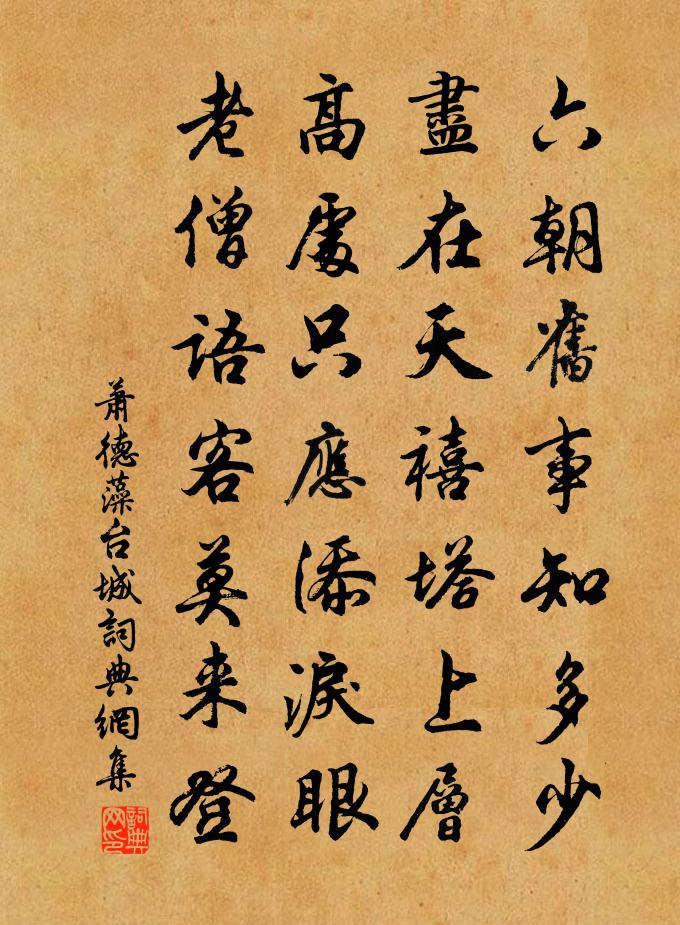 六朝舊事知多少
盡在天禧塔上層
高處只應添淚眼
老僧語客莫来登
蕭德藻台城詞典網集
詞典网印